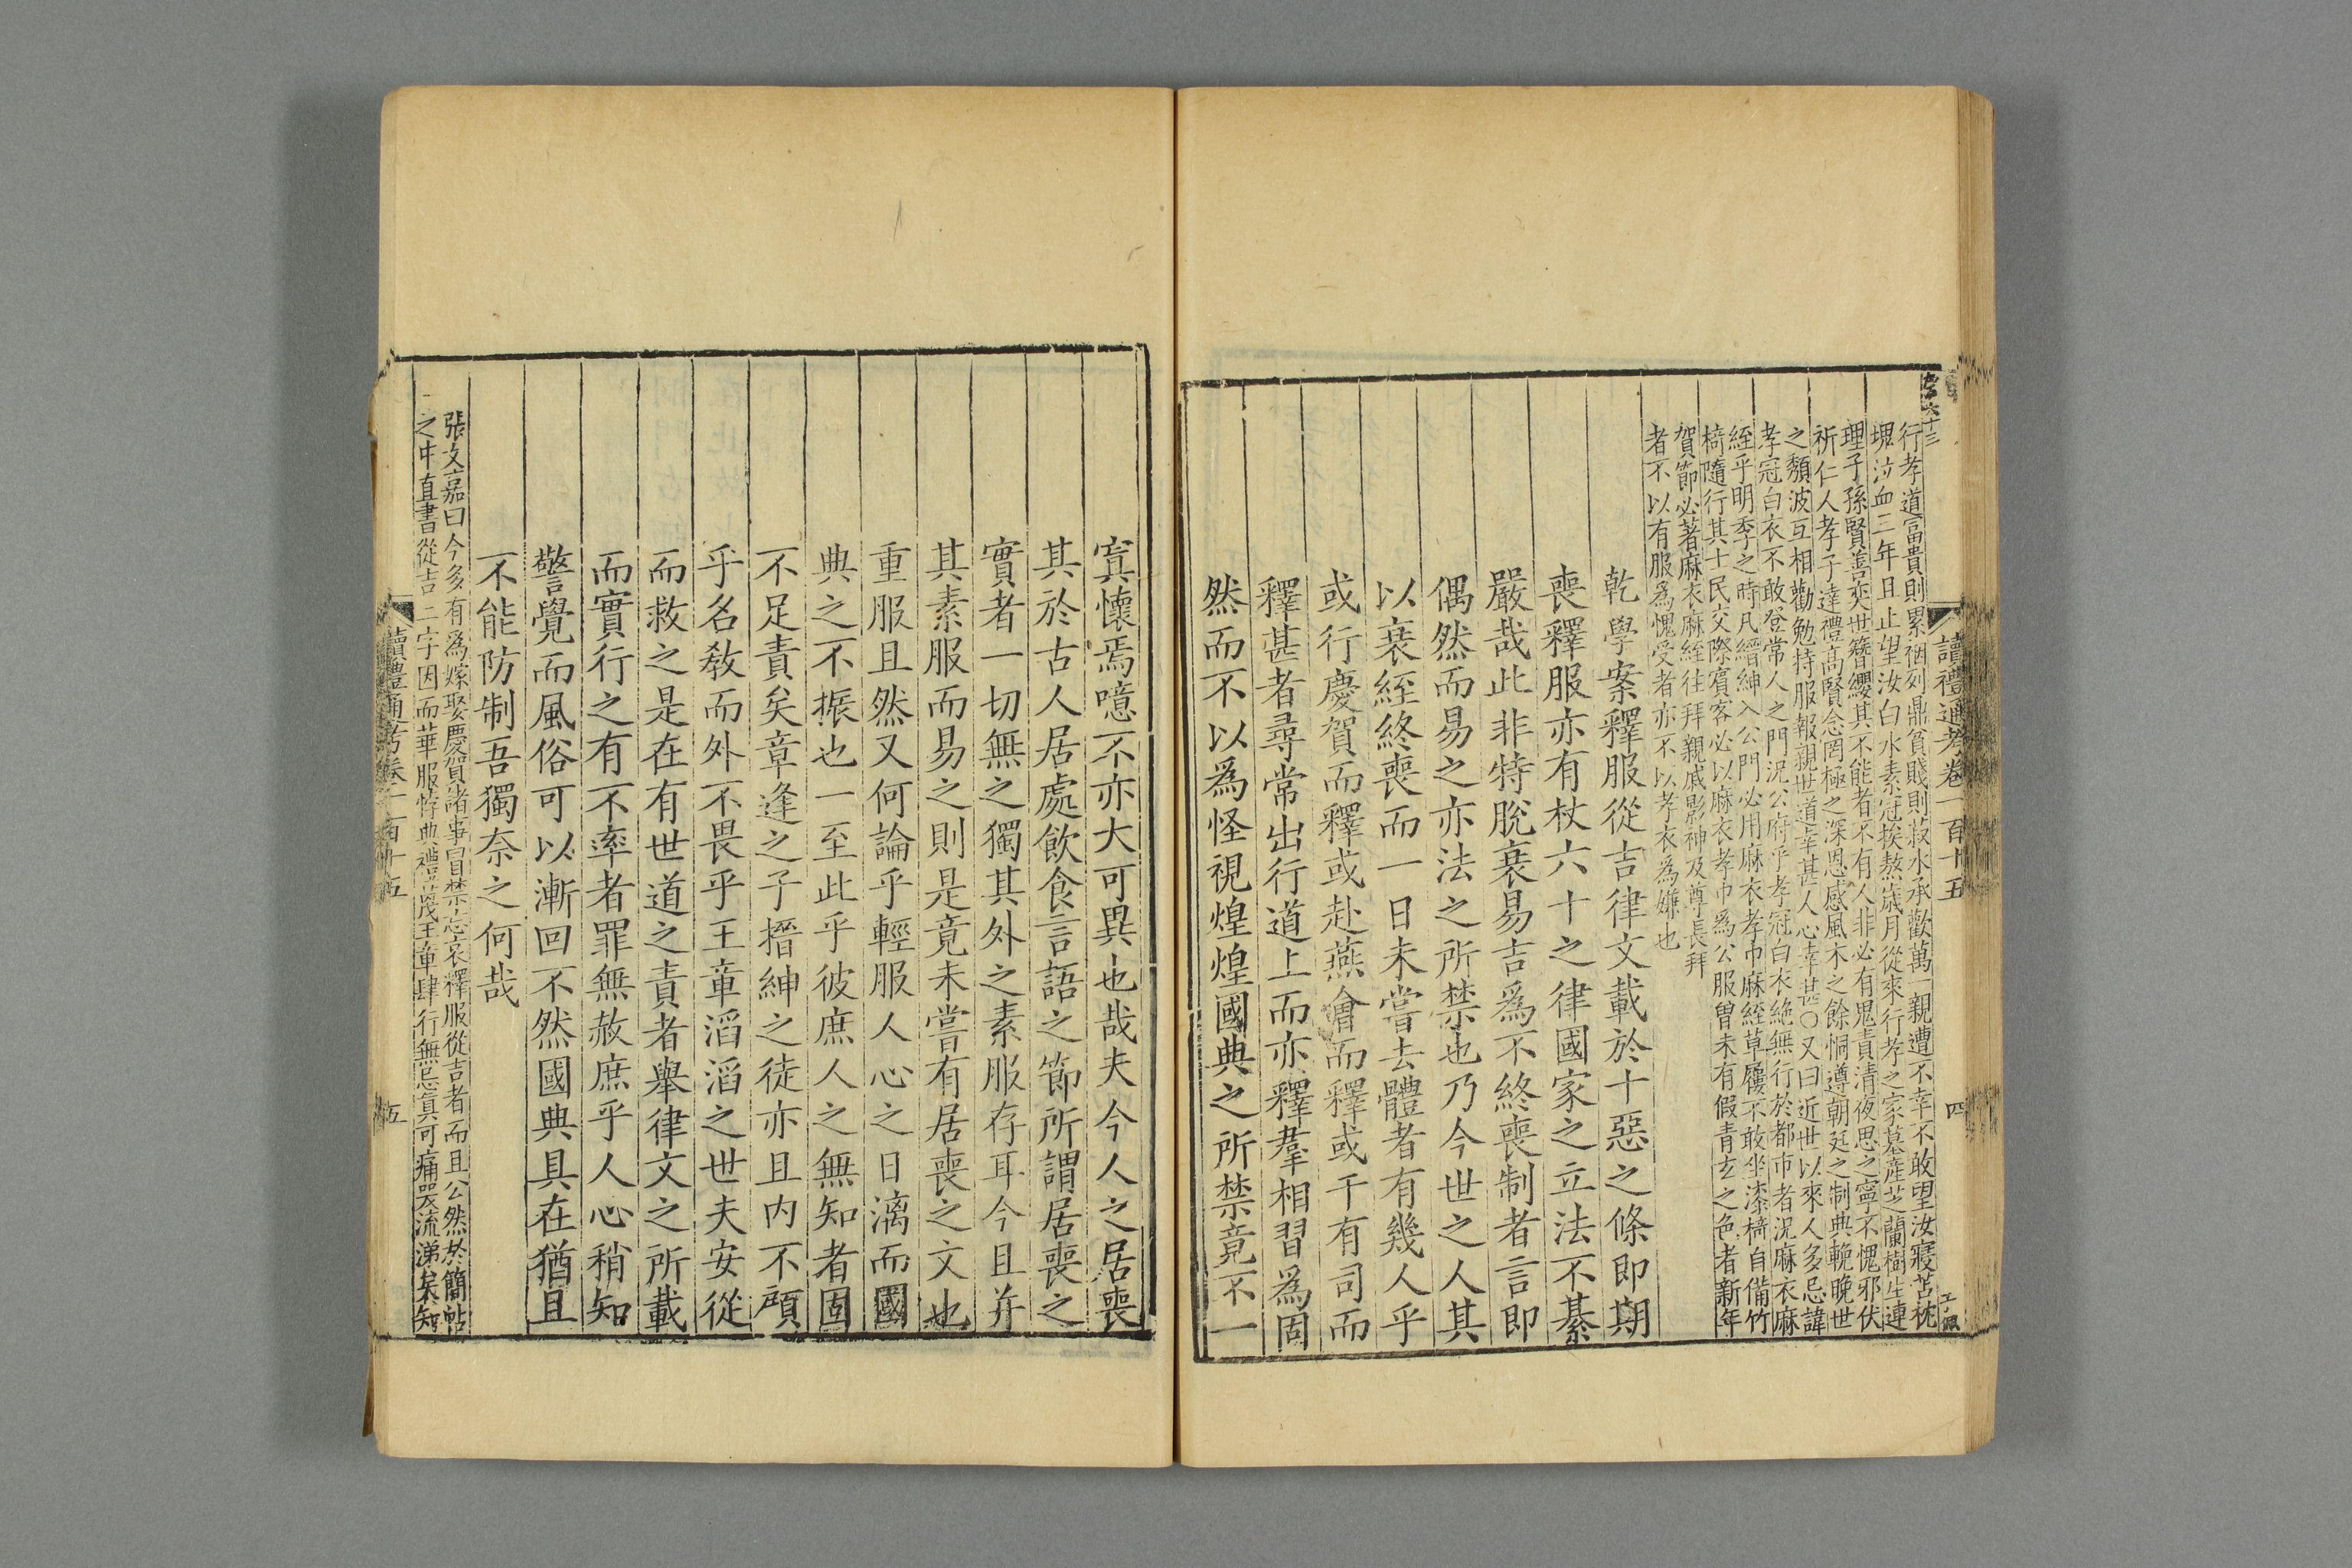 讀禮通考卷一百十五
四
行孝道富貴則累裀列鼎貧賤則菽水承歡萬一親遭不幸不敢望汝寢苫枕
塊泣血三年且止望汝白水素冠挨熬歲月從來行孝之家墓產芝蘭樹生連
理子孫賢善奕世簪纓其不能者不有人非必有鬼責清夜思之寧不愧邪伏
祈仁人孝子達禮高賢念罔極之深恩感風木之餘恫遵朝廷之制典輓晚世
之頹波互相勸勉持服報親世道幸甚人心幸甚〇又曰近世以來人多忌諱
孝冠白衣不敢登常人之門況公府乎孝冠白衣絶無行於都市者況麻衣麻
絰乎明季之時凡縉紳入公門必用麻衣孝巾麻絰草履不敢坐漆椅自備竹
椅隨行其士民交際賓客必以麻衣孝巾爲公服曾未有假青玄之色者新年
賀節必著麻衣麻絰往拜親戚影神及尊長拜
者不以有服爲愧受者亦不以孝衣爲嫌也
乾學案釋服從吉律文載於十惡之條即期
喪釋服亦有杖六十之律國家之立法不綦
嚴哉此非特脫衰易吉爲不終喪制者言即
偶然而易之亦法之所禁也乃今世之人其
以衰絰終喪而一日未嘗去體者有幾人乎
或行慶賀而釋或赴燕會而釋或干有司而
釋甚者尋常出行道上而亦釋羣相習爲固
然而不以爲怪視煌煌國典之所禁竟不一
寘懷焉噫不亦大可異也哉夫今人之居喪
其於古人居處飲食言語之節所謂居喪之
實者一切無之獨其外之素服存耳今且并
其素服而易之則是竟未嘗有居喪之文也
重服且然又何論乎輕服人心之日漓而國
典之不振也一至此乎彼庶人之無知者固
不足責矣章逢之子搢紳之徒亦且内不顧
乎名教而外不畏乎王章滔滔之世夫安從
而救之是在有世道之責者舉律文之所載
而實行之有不率者罪無赦庶乎人心稍知
警覺而風俗可以漸回不然國典具在猶且
不能防制吾獨奈之何哉
張文嘉曰今多有爲嫁娶慶賀諸事冒禁忘哀釋服從吉者而且公然於簡帖
之中直書從吉二字因而華服悖典禮蔑王章肆行無忌真可痛哭流涕矣知
讀禮通考卷一百十五
五